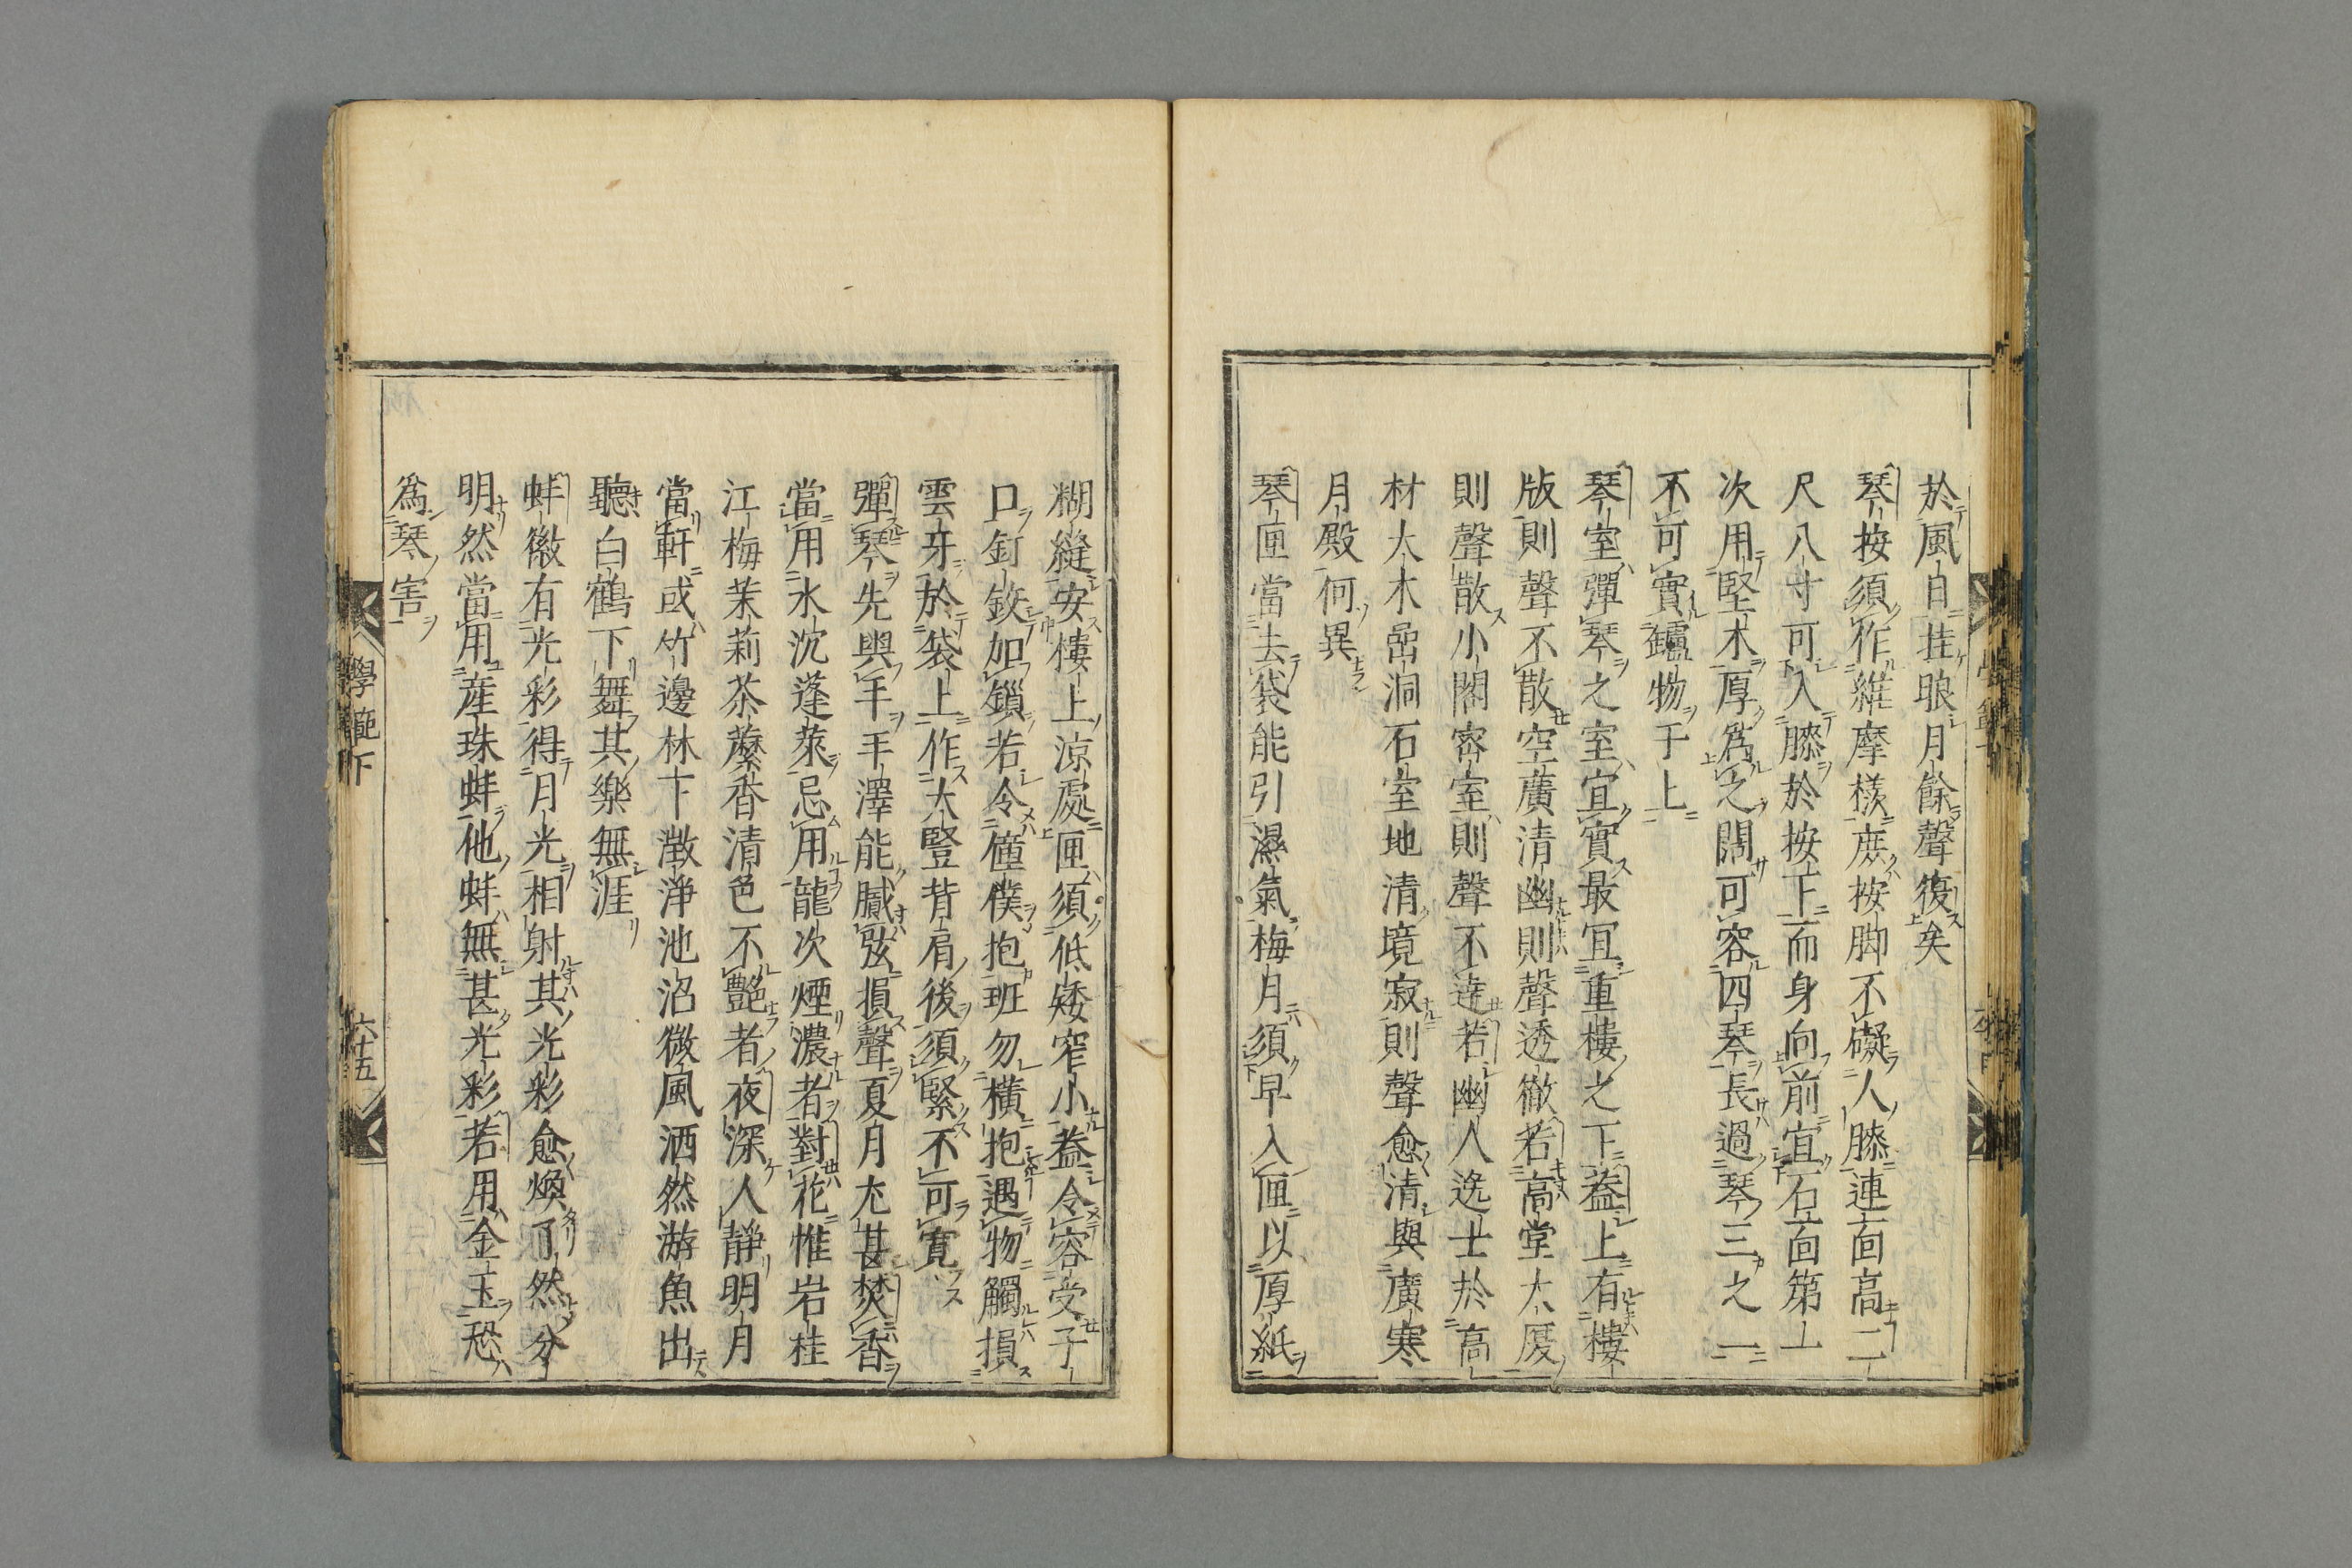 於風日挂晾月餘聲復矣
琴按須作維摩樣庶按脚不礙人膝連面高二
尺八寸可入膝於按下而身向前宜石面第一
次用堅木厚爲之闊可容四琴長過琴三之一
不可實鑪物于上
琴室彈琴之室宜實最冝重樓之下葢上有樓
版則聲不散空廣清幽則聲透徹若高堂大厦
則聲散小閣密室則聲不逹若幽人逸士於高
材大木嵒洞石室地清境寂則聲愈清與廣寒
月殿何異
琴匣當去袋能引濕氣梅月須早入匣以厚紙
糊縫安樓上凉處匣須低矮窄小葢令容受子
口釘鉸加鎖若令僮僕抱班勿横抱遇物觸損
雲牙於袋上作大豎背肩後須緊不可寛
彈琴先與手手澤能膩弦損聲夏月尤甚焚香
當用水沉蓬萊忌用龍次煙濃者對花惟岩桂
江梅茉莉荼蘪香清色不艶者夜深人靜明月
當軒或竹邊林下澂浄池沼微風洒然游魚出
聽白鶴下舞其樂無涯
蚌徽有光彩得月光相射其光彩愈煥了然分
明然當用産珠蚌他蚌無甚光彩若用金玉恐
爲琴害
學範下
六十五